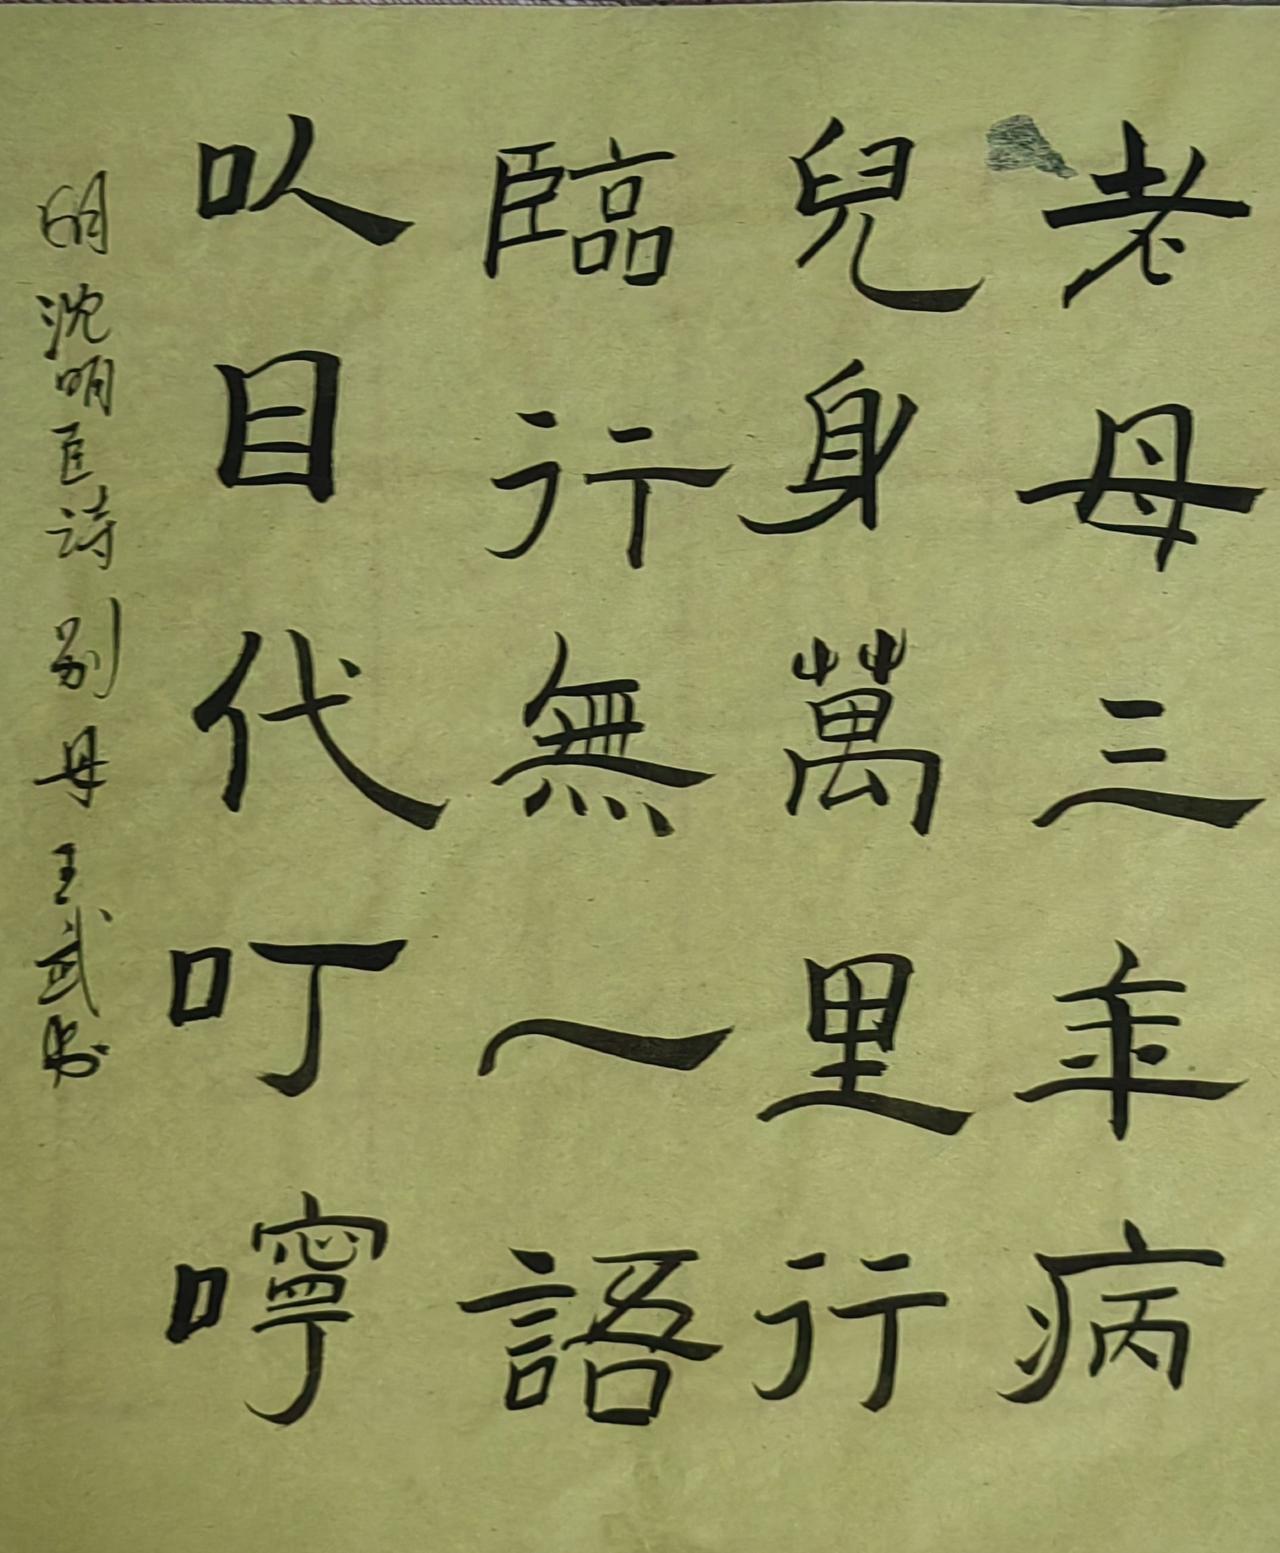 老母三年病
兒身萬里行
臨行無一語
以目代叮嚀
明沈明臣詩 别母 王武书